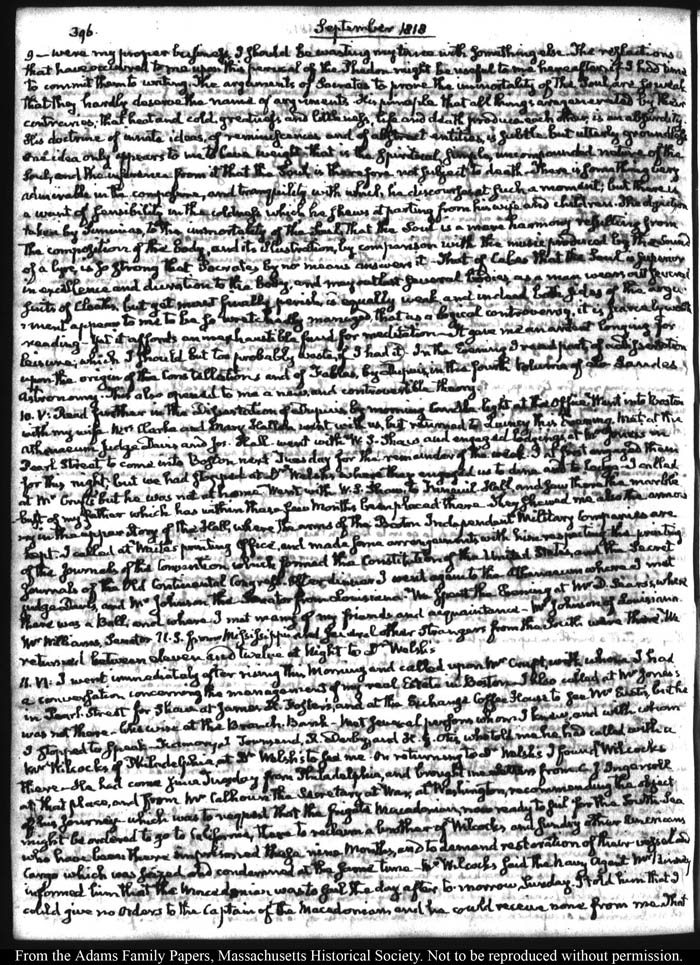 396.
September 1818
9— were my proper business, I should be wasting my time with something else. The reflections
that have occurred to me upon this perusal of the Phædon might be useful to me hereafter, if I had time
to commit them to writing. The arguments of Socrates to prove the immortality of the Soul, are so weak
that they hardly deserve the name of arguments. His principle that all things are generated by their
contraries; that heat and cold, greatness and littleness, life and death produce each other, is an absurdity.
His doctrine of innate ideas, of reminiscences and of abstract entities, is subtle but utterly groundless.
One idea only appears to me to have weight, that is the spiritual, simple, uncompounded nature of the
Soul, and the inference from it that the Soul is therefore not subject to death. There is something very
admirable in the composure, and tranquility with which he discourses at such a moment; but there is
a want of sensibility in the coldness which he shews at parting from his wife and children. The objection
taken by Simmias, to the immortality of the Soul, that the Soul is a mere harmony resulting from
the composition of the body, and its illustration, by comparison with the music produced by the sound
of a lyre, is so strong that Socrates by no means answers it. That of Cebes that the Soul is superior
in excellence and duration to the body, and may outlast several bodies, as a man wears out several
suits of Cloaths, but yet must finally perish is equally weak and indeed both sides of the argu-
ment appear to me to be so wretchedly managed, that as a logical controversy, it is scarce worth
reading. Yet it affords an inexhaustible fund for meditation. It gave me an ardent longing for
leisure; which I should but too probably waste, if I had it. In the Evening I read part of a dissertation
upon the origin of the Constellations and of Fables, by Dupuis, in the fourth volume of La Lande's
Astronomy. This also opened to me a new and controvertible theory.
10. V: Read further in the Dissertation of Dupuis by morning candle light at the Office. Went into Boston
with my wife. Mrs Clarke and Mary Hellen went with us, but returned to Quincy this Evening. Met at the
Athenaeum Judge Davis and Jos. Hall. went with W. S. Shaw and engaged lodgings at Mr Jones's in
Pearl Street, to come into Boston next Tuesday for the remainder of the week. I at first engaged them
for this night, but we had stopped at Dr Welsh's where they engaged us to dine and to lodge. I called
at Mr Cruft's but he was not at home. Went with W. S. Shaw to Faneuil Hall, and saw there the marble
bust of my father which has within these few Months been placed there. They shewed me also the armo-
ry in the upper story of the Hall, where the arms of the Boston Independent Military Companies are
kept. I called at Wait's printing Office, and made some arrangements with him respecting the printing
of the Journals of the Convention which formed the Constitution of the United States and the Secret
Journals of the Old Continental Congress. After dinner I went again to the Athenaeum where I met
Judge Davis, and Mr Johnson the Senator from Louisiana. We spent the Evening at Mr D. Sears's, where
there was a Ball, and where I met many of my friends and acquaintance. Mr Johnson of Louisiana
Mr Williams, Senator U.S. from Mississippi and several other Strangers from the South were there. We
returned between eleven and twelve at Night to Dr Welsh's.
11. VI: I went immediately after rising this Morning and called upon Mr Cruft, with whom I had
a conversation concerning the management of my real Estate in Boston. I also called at Mr Jones's
in Pearl Street for Shaw at James H. Foster's, and at the Exchange Coffee House to see Mr Eustis, but he
was not there. Likewise at the Branch Bank. Met several persons whom I knew, and with whom
I stopped to speak. Townsend, R. Derby, and H. G. Otis, who told me he had called with a
Mr Wilcocks of Philadelphia, at Dr Welsh's to see me. On returning to Dr Welsh's I found Wilcocks
there. He had come since Tuesday from Philadelphia, and brought me letters from C. J. Ingersoll
at that place, and from Mr Calhoun the Secretary at War, at Washington, recommending the object
of his Journey—which was to request that the frigate Macedonian, now ready to sail for the South Sea
might be ordered to go to California, there to reclaim a brother of Wilcocks, and sundry other Americans
who have been there imprisoned these nine Months, and to demand restoration of their vessel and
Cargo which was seized and condemned at the same time. Mr Wilcocks said the Navy Agent Mr Binney
informed him that the Macedonian was to sail the day after to-morrow, Sunday. I told him that I
could give no Orders to the Captain of the Macedonian, and he could receive none from me. That
From the Adams Family Papers, Massachusetts Historical Society. Not to be reproduced without permission.